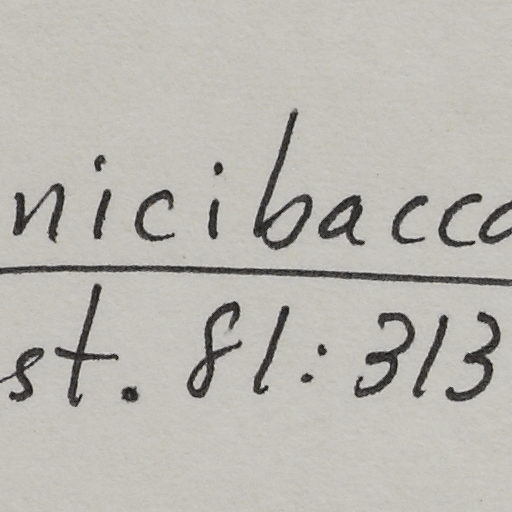 nicibacca
st. 81:313